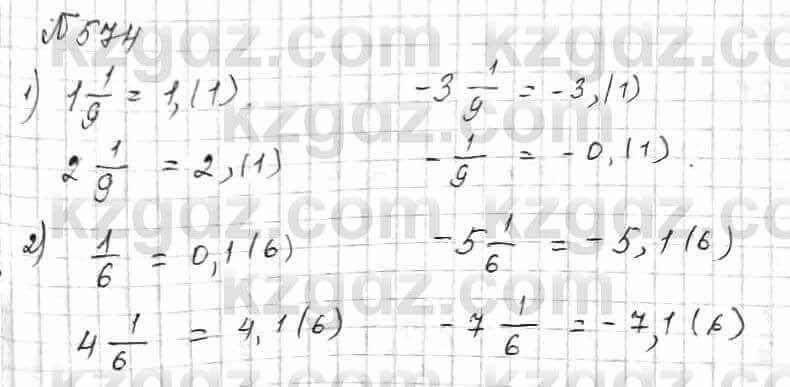 №574
1) 1 1/9 = 1,(1). -3 1/9 = -3,(1)
2 1/9 = 2,(1) -1/9 = -0,(1).
2) 1/6 = 0,1(6) -5 1/6 = -5,1(6)
4 1/6 = 4,1(6) -7 1/6 = -7,1(6)
kzgdz.com kzgdz.com
kzgdz.com
kzgdz.com kzgdz.com
kzgdz.com